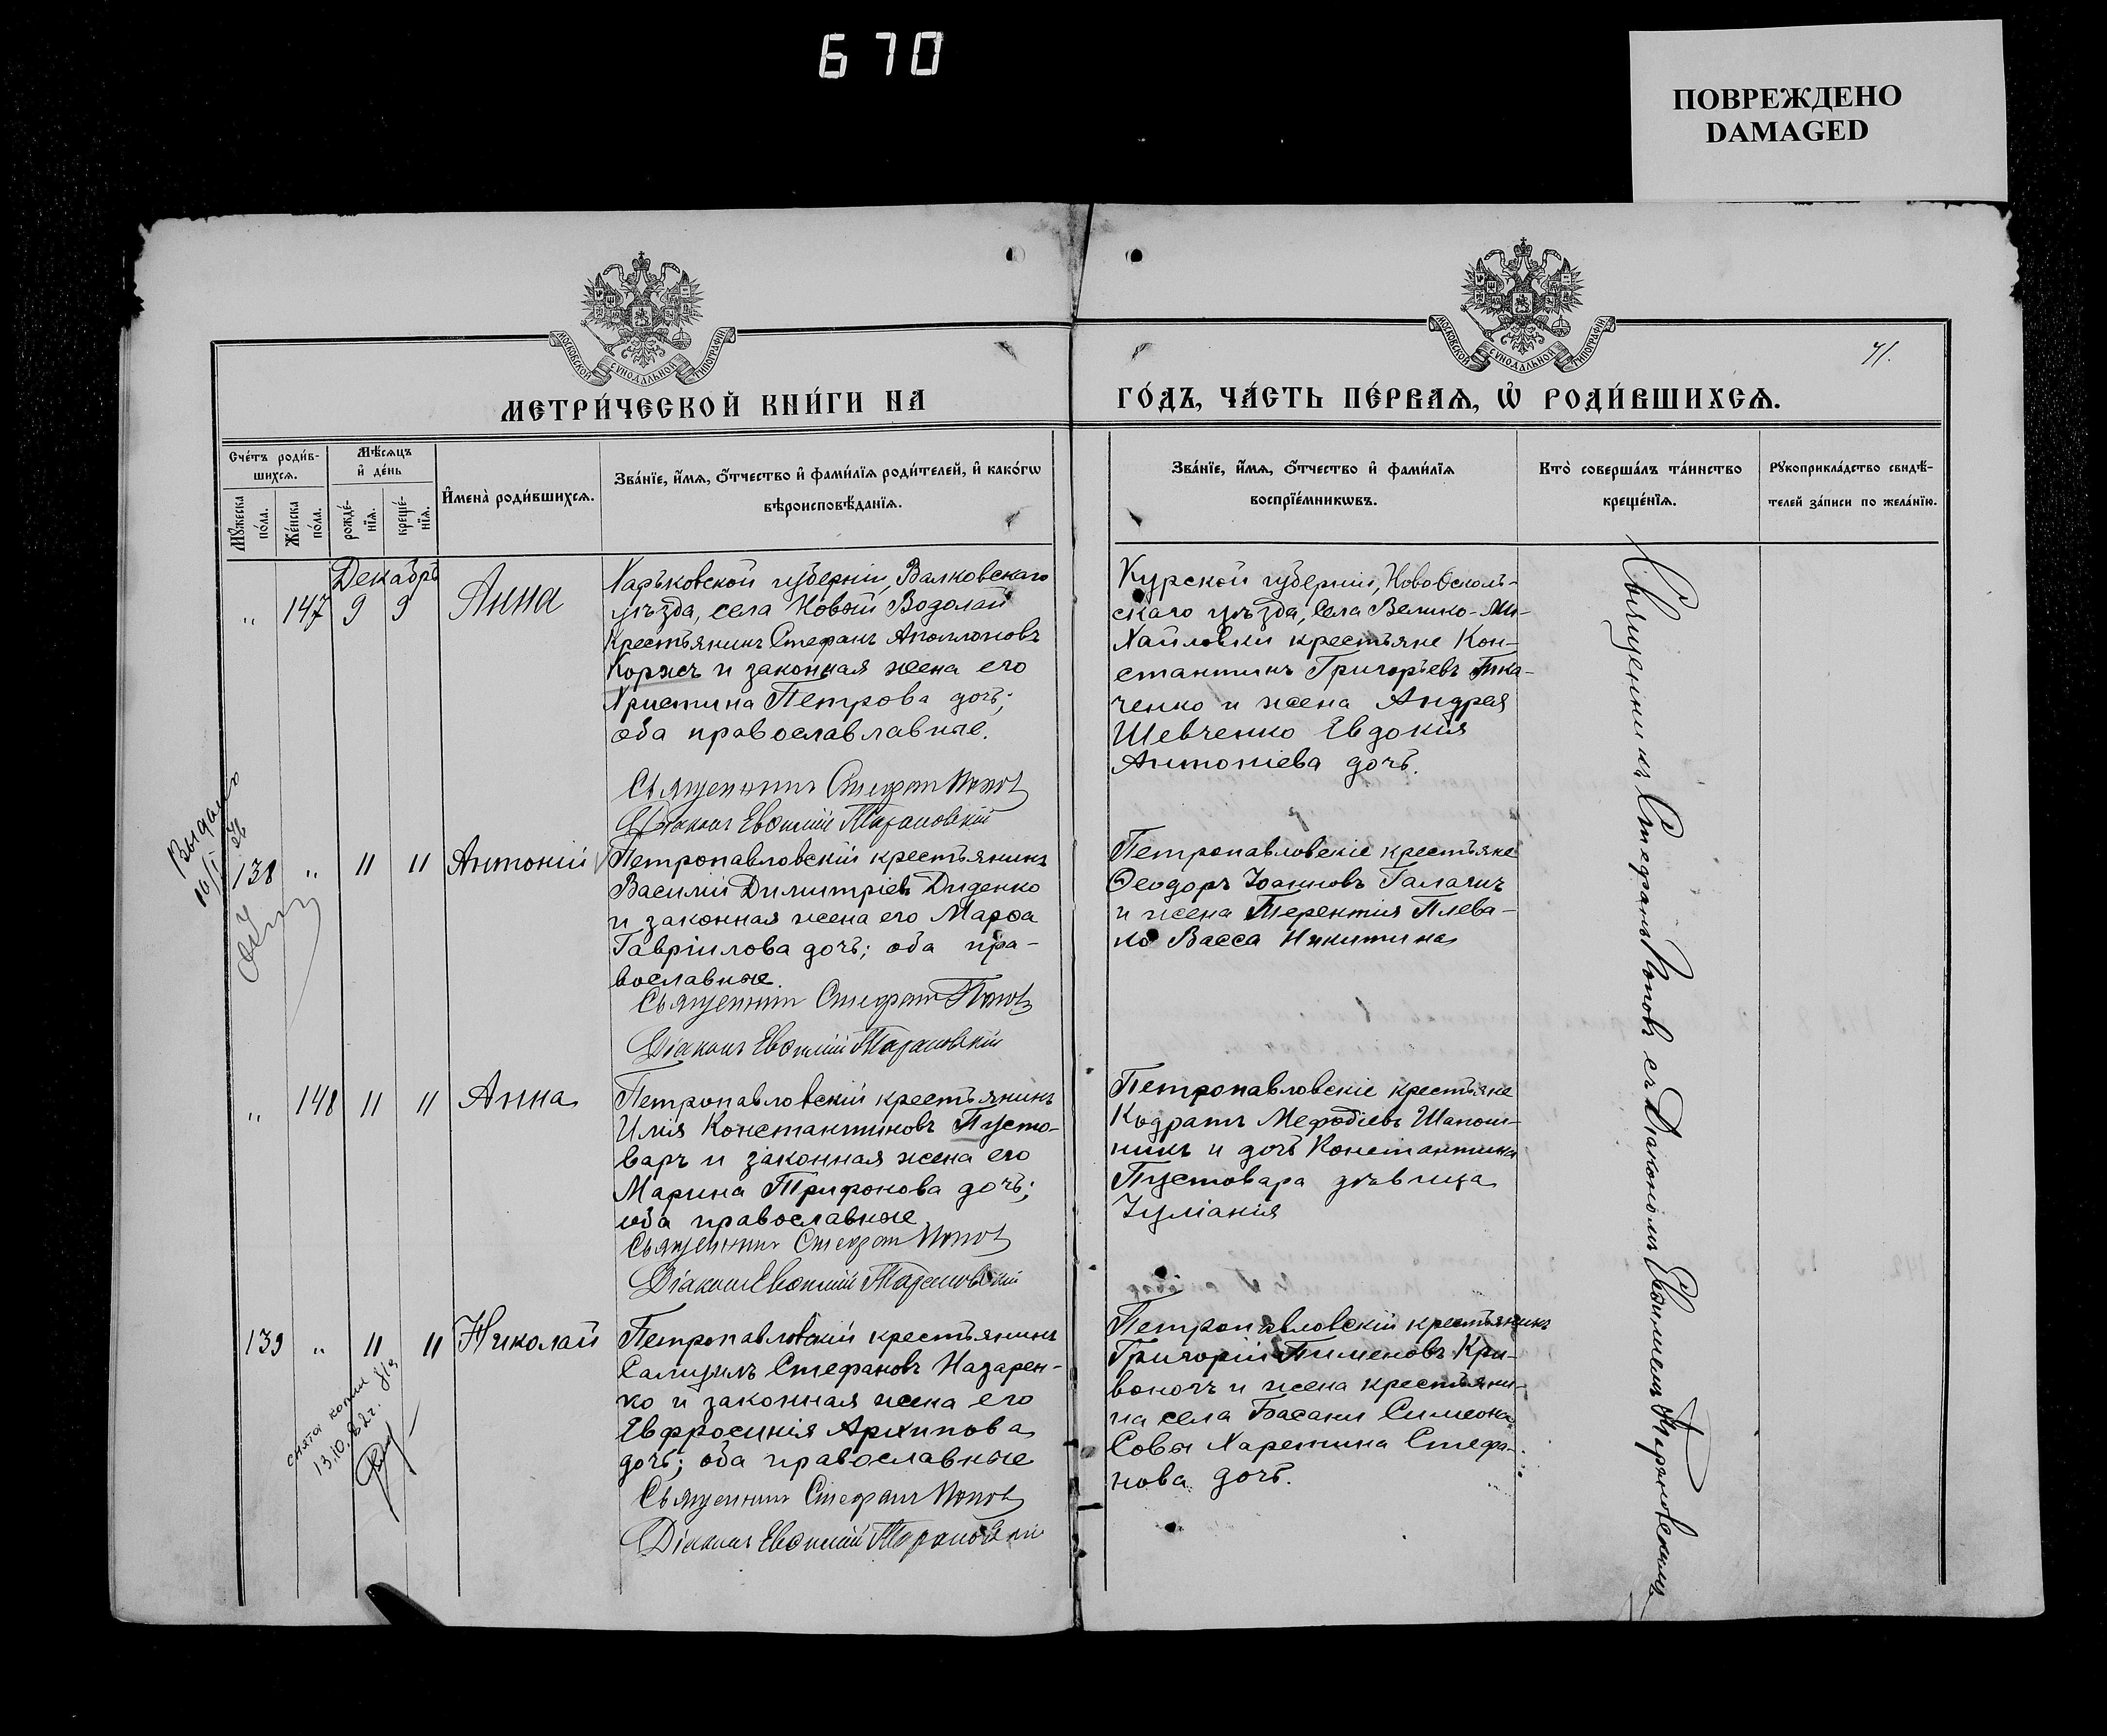 670
ПОВРЕЖДЕНО
DAMAGED
МОСКОВСКОЙ СѴНОДАЛЬНОЙ ТИПОГРАФІИ
МОСКОВСКОЙ СѴНОДАЛЬНОЙ ТИПОГРАФІИ
71.
МЕТРИ́ЧЕСКОЙ КНИ́ГИ НА
ГО́ДЪ, ЧА́СТЬ ПЕ́РВАѦ, Ѡ҆ РОДИ́ВШИХСѦ.
Сче́тъ роди́в-
шихсѧ.
Мꙋ́жеска
по́ла.
Же́нска
по́ла.
Мѣ́сѧцъ
и҆ де́нь
рожде́-
нїѧ.
креще́-
нїѧ.
И҆мена̀ роди́вшихсѧ.
Зва́нїе, и҆́мѧ, ѻ҆́тчество и҆ фами́лїѧ роди́телей, и҆ како́гѡ
вѣроисповѣ́данїѧ.
Зва́нїе, и҆́мѧ, ѻ҆́тчество и҆ фами́лїѧ
воспрїе́мникѡвъ.
Кто̀ соверша́лъ та́инство
креще́нїѧ.
Рꙋкоприкла́дство свидѣ́-
телей за́писи по жела́нїю.
Декабрь
„ 147 9 9 Анна
Харьковской губерніи, Валковскаго
уѣзда, села Новый Водолай
крестьянинъ Стефанъ Аполлоновъ
Коржъ и законная жена его
Христина Петрова дочь;
оба православлавные.
Священникъ Стефанъ Поповъ
Діаконъ Евѳимій Тарановскій
Курской губерніи, Ново-Осколь-
скаго уѣзда, села Велико-Ми-
хайловки крестьяне Кон-
стантинъ Григорьевъ Тка-
ченко и жена Андрея
Шевченко Евдокія
Антоніева дочь.
Выдано
10/I 26
138 „ 11 11 Антоній
Петропавловскій крестьянинъ
Василій Димитріевъ Диденко
и законная жена его Марѳа
Гавріилова дочь; оба пра-
вославные.
Священникъ Стефанъ Поповъ
Діаконъ Евѳимій Тарановскій
Петропавловскіе крестьяне
Ѳеодоръ Іоанновъ Галагин
и жена Терентія Плева-
ко Васса Никитина
„ 148 11 11 Анна
Петропавловскій крестьянинъ
Илія Константиновъ Пусто-
варъ и законная жена его
Марина Трифонова дочь;
оба православные
Священникъ Стефанъ Поповъ
Діаконъ Евѳимій Тарановскій
Петропавловскіе крестьяне
Кодратъ Меѳодіевъ Шапош-
никъ и дочь Константина
Пустовара дѣвица
Іуліанія
139 „ 11 11 Николай
снята копия
13.10.82г.
Петропавловскій крестьянинъ
Самуилъ Стефановъ Назарен-
ко и законная жена его
Евфросинія Архипова
дочь; оба православные
Священникъ Стефанъ Поповъ
Діаконъ Евѳимій Тарановскій
Петропавловскій крестьянинъ
Григорій Пименовъ Кри-
воночъ и жена крестьяни-
на села Басани Симеона
Совы Харетина Стефа-
нова дочь.
Священникъ Стефанъ Поповъ съ Діакономъ Евѳиміемъ Тарановскимъ